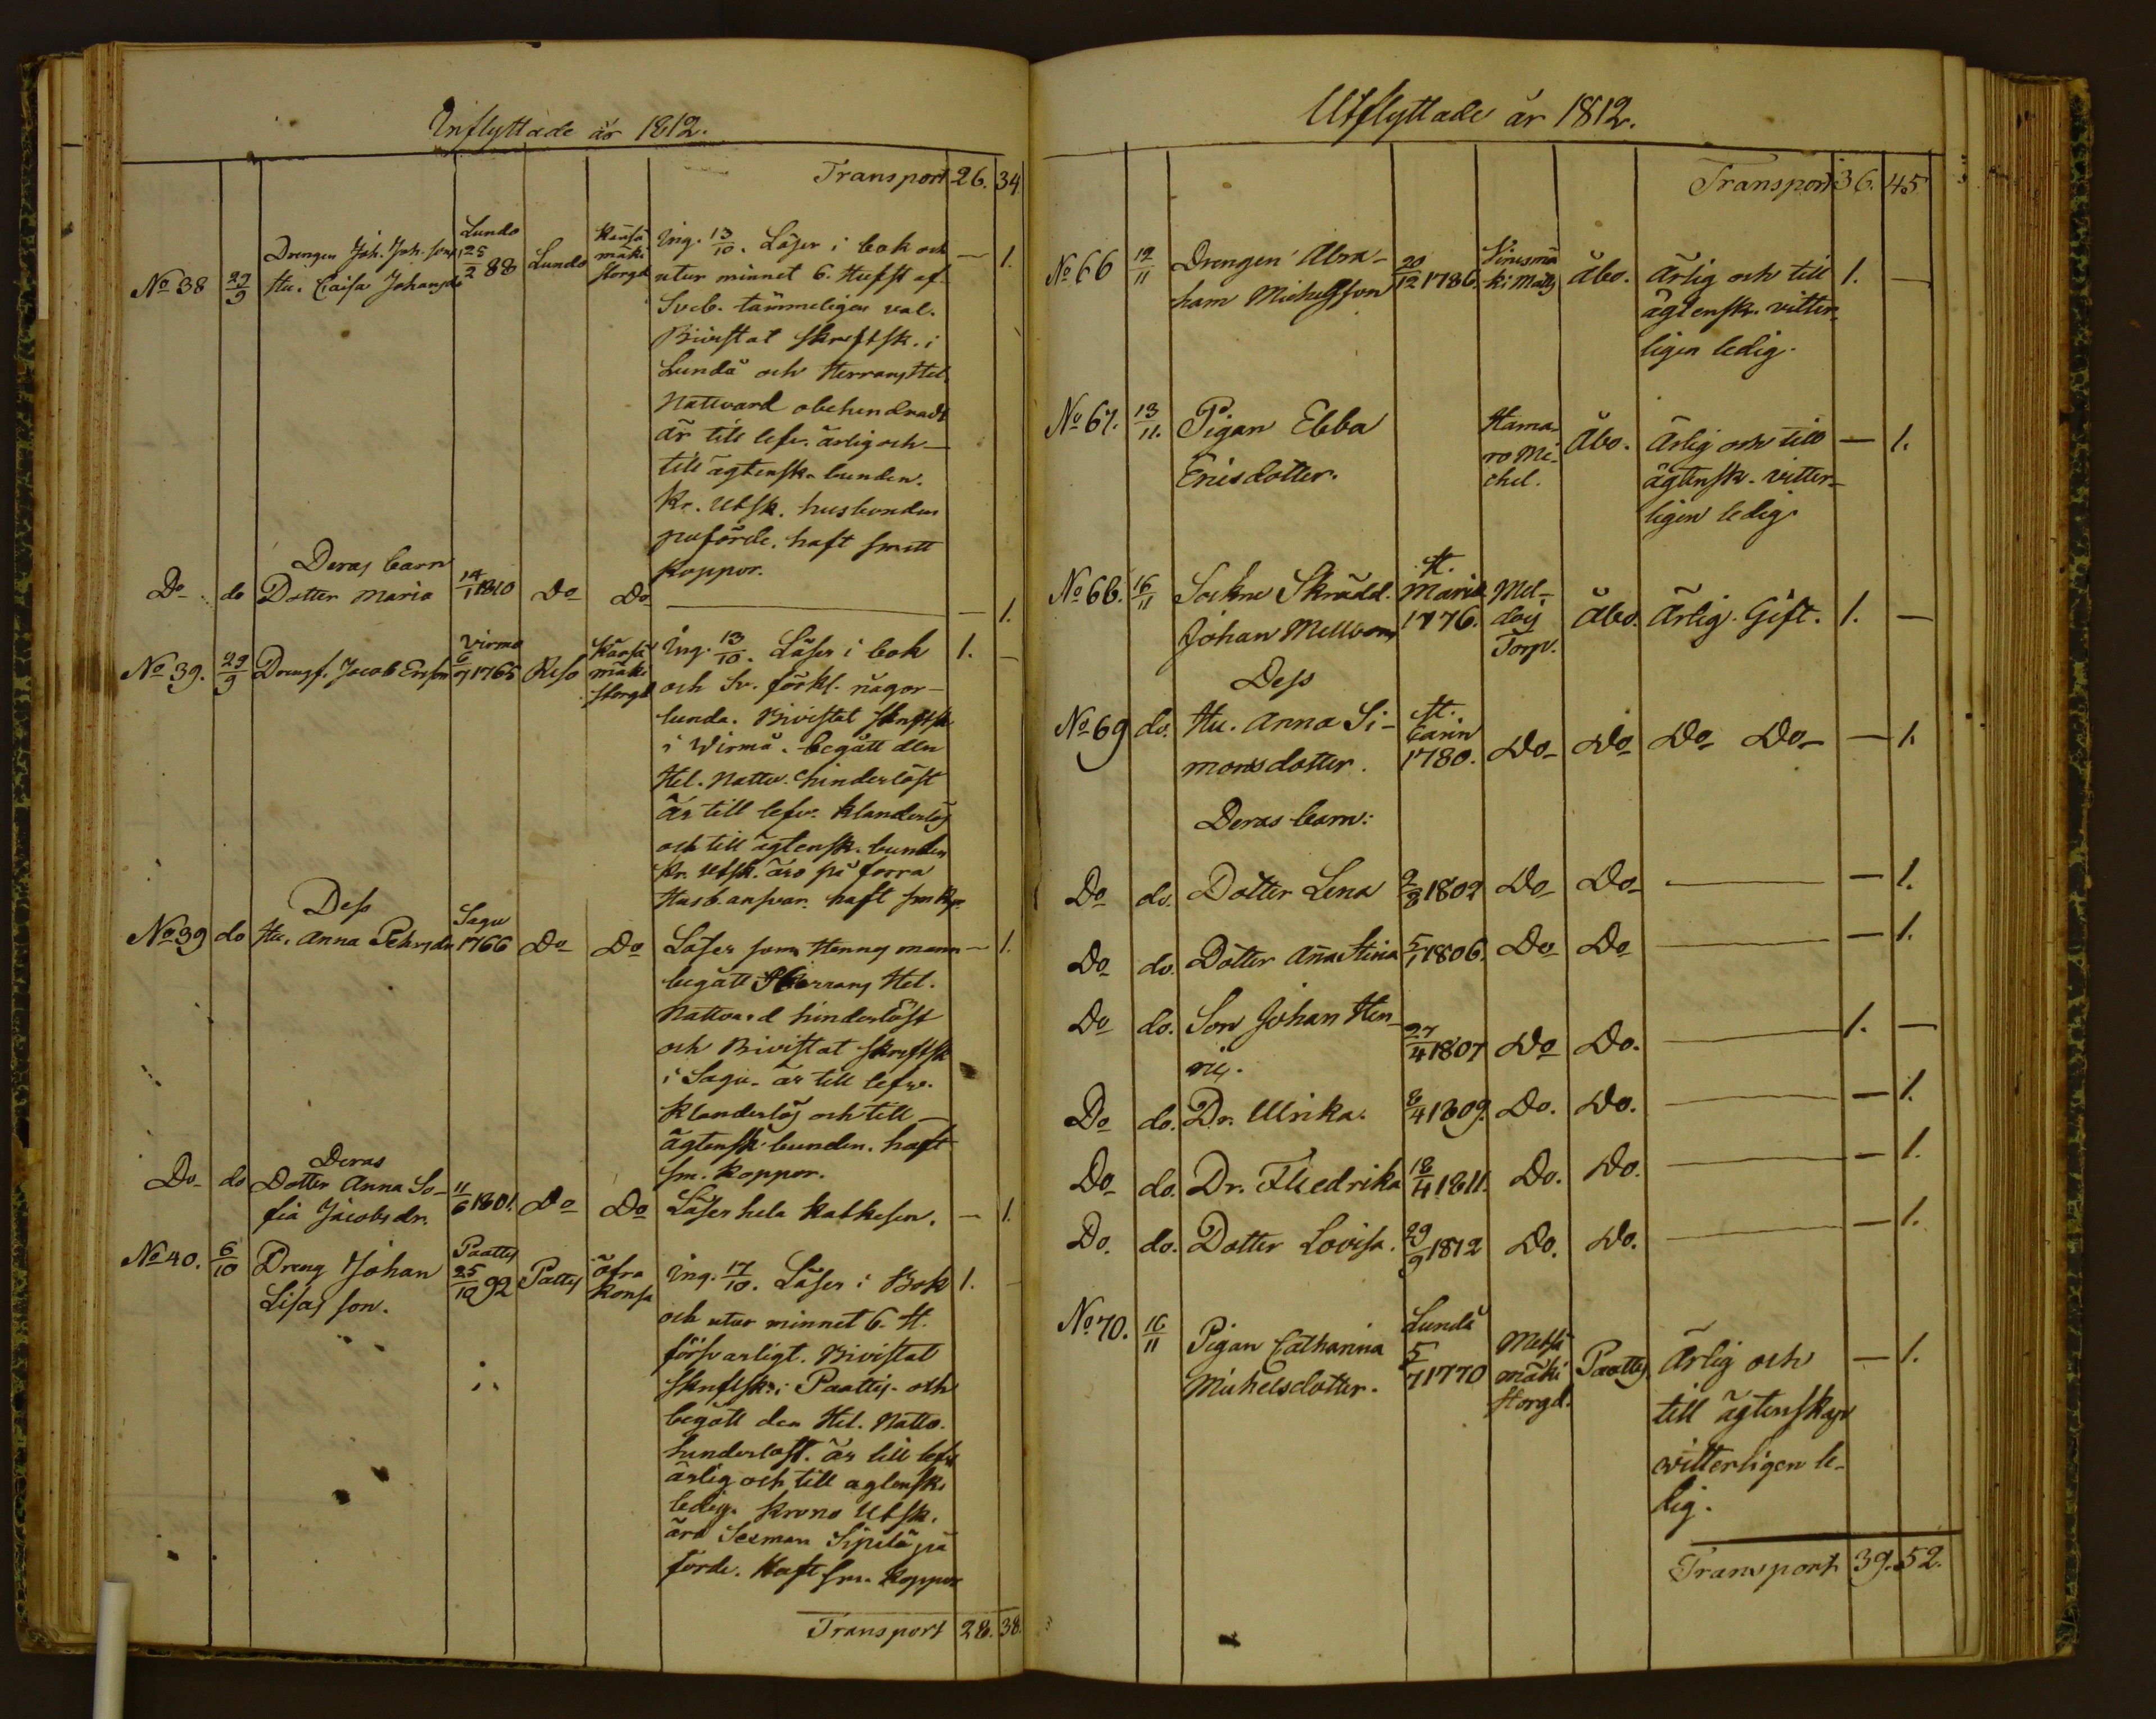 Inflyttade år 1812.
Transport 26. 34
No 38 29/9 Drengen Joh. Joh. son Lundo 25/2 88 Lundo Kärsä mäki Storgd Ing. 13/10. Läser i bok och — 1.
Hu. Caisa Johansdr utur minnet 6. Hufst af
Sveb. tämmeligen val.
Bivistat skriftsk. i
Lundå och Herrans Hel.
Nattvard obehindradt
är till lefv. ärlig och
till ägtensk. bunden.
Kr. Utsk. husbonden
påförde. haft smitt
koppor.
Deras barn
Do do Dotter Maria 14/1 1810 Do Do — 1.
No 39. 29/9 Drengf. Jacob Ersson Virmo 6/7 1765 Reso Kärsä mäki Storgd Ing. 13/10. Läser i bok 1. —
och Sv. förkl. någor-
lunda. Bivistat skriftsk
i Wirmå. begått den
Hel. Nattv. hinderlöst
är till lefv. klanderlös
och till ägtensk. bunden
Kr. Utsk. äro på förra
Husb. ansvar. haft sm kp.
Dess
No 39 do Hu. Anna Pehrsdr Sagu 1766 Do Do Läser som Hennes mann — 1.
begått Herrans Hel.
Nattvard hinderlöst
och Bivistat skriftsk
i Sagu. är till lefv.
klanderlös och till
ägtensk. bunden. haft
sm. koppor.
Deras
Do do Dotter Anna So- 11/6 1801. Do Do Läser hela Kathesen. — 1.
fia Jacobsdr.
No 40. 6/10 Dreng Johan Paattis 25/10 92 Pattis öfra Konsa Ing. 17/10. Läser i Bok 1. —
Lisas son. och utur minnet 6. H.
försvarligt. Bivistat
skriftsk. i Paattis och
begått den Hel. Nattv.
hinderlöst. är till lefv
ärlig och till agtensk.
ledig. Krono Utsk.
äro Sexman Sipilä på
förde. Haft sm. koppor
Transport 28. 38.
Utflyttade år 1812.
Transport 36. 45
No 66 12/11 Drengen Abra- 20/12 1786. ki Matts Åbo. Ärlig och till 1. —
ham Michelsson ägtensk. vitter-
ligen ledig.
No 67. 13/11. Pigan Ebba Hama- ro Mi- chel. Åbo. Ärlig och till — 1.
Ericsdotter. ägtensk. vitter-
ligen ledig.
No 68. 16/11 Sockne Skrädd. St. Mariæ 1776. Mel- Torp. Åbo. Ärlig. Gift. 1. —
Johan Mellbom
Dess
No 69 do. Hu. Anna Si- St. Carin 1780. Do Do Do Do — 1.
monsdotter.
Deras barn:
Do do. Dotter Lena 2/3 1802 Do Do — 1.
Do do. Dotter Anna Stina 5/1 1806. Do Do — 1.
Do do. Son Johan Hen- 27/4 1807 Do Do. 1. —
ric.
Do do. Dr. Ulrika. 8/4 1809. Do. Do. — 1.
Do do. Dr. Fredrika 18/4 1811. Do. Do. — 1.
Do. do. Dotter Lovisa. 29/9 1812 Do. Do. — 1.
No 70. 16/11 Pigan Catharina Lundå 5/7 1770 Metsä mäki Storgd. Paattis Ärlig och — 1.
Michelsdotter. till ägtenskap
witterligen le-
dig.
Transport 39. 52.